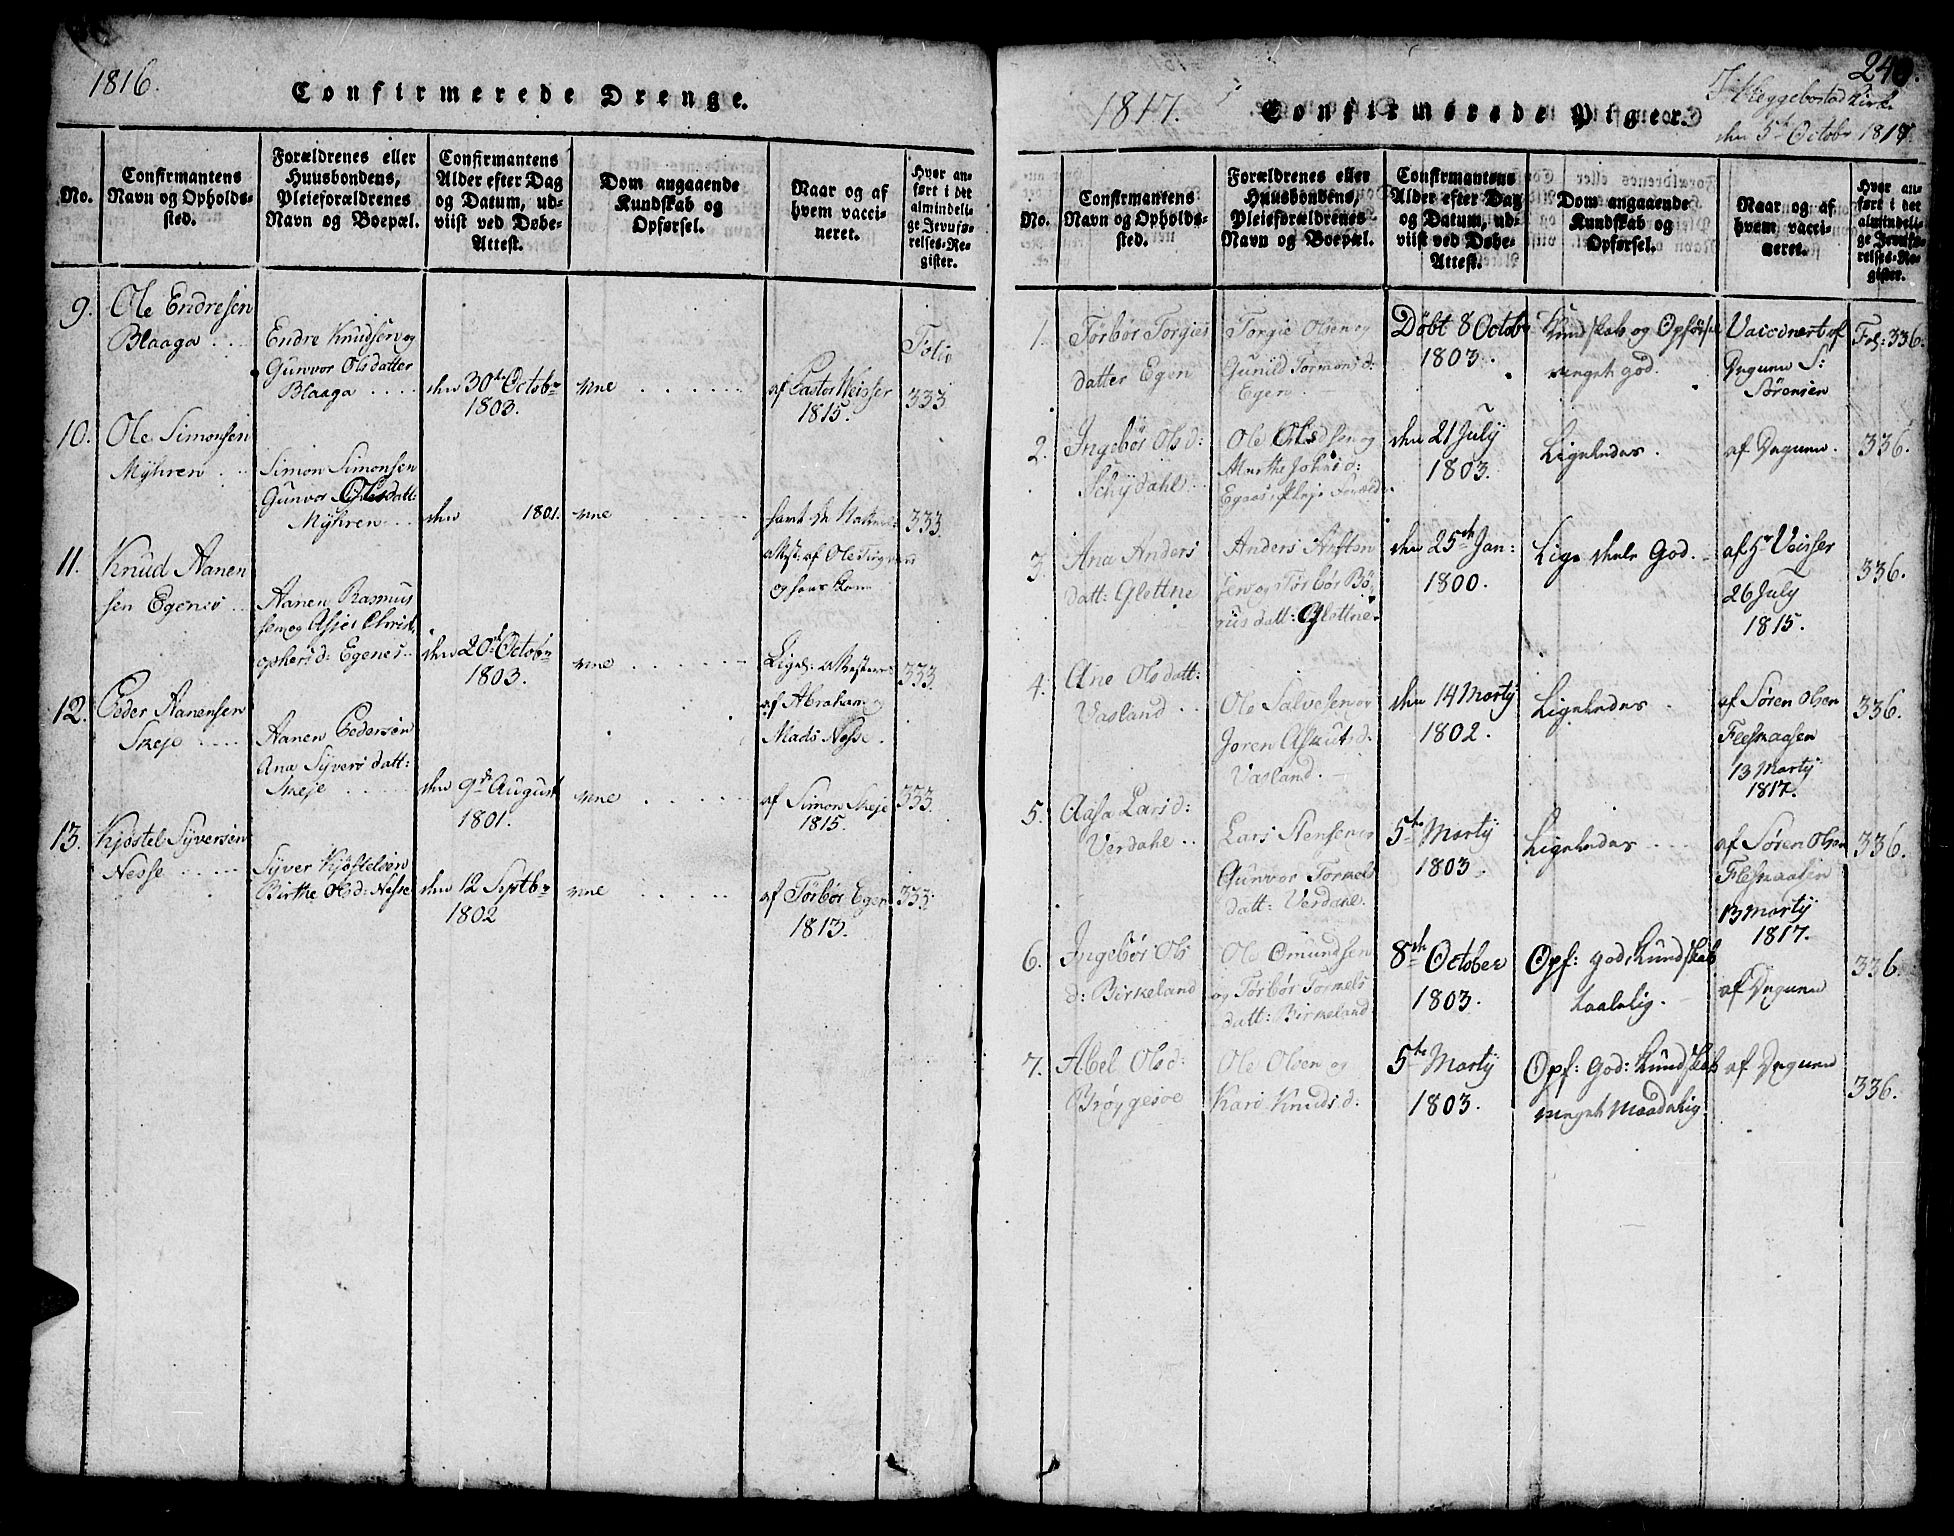 1816.
Confirmerede Drenge.
No.
Confirmantens
Navn og Opholds-
sted.
Forældrenes eller
Huusbondens,
Pleieforældrenes
Navn og Boepæl.
Confirmantens
Alder efter Dag
og Datum, ud-
viist ved Døbe-
Attest.
Dom angaaende
Kundskab og
Opførsel.
Naar og af
hvem vacci-
neret.
Hvor an-
ført i det
almindeli-
ge Jevnfø-
relses-Re-
gister.
9. Ole Endresen
Blaaga . . .
Endre Knudsen og
Gunvor Olsdatter
Blaaga . . . .
den 30te Octobr
1803.
af Pastor Weisser
1815.
Folio
333
10. Ole Simonsen
Mÿhren . . .
Simon Simonsen
Gunvor Olesdatt:
Mÿhren . . .
den 1801.
333.
11. Knud Aanen
sen Egenes . .
Aanen Rasmus
sen og Asjer Christ
ophersd: Egenes . .
den 20de Octobr
1803.
af Abraham og
Mads Nesse.
333.
12. Peder Aanensen
Skeje . . . .
Aanen Pedersen
Ana Sÿversdatt:
Skeje . . . .
den 9de August
1801.
af Simon Skeje
1815.
333
13. Kjøstel Sÿversen
Nesse . . . . .
Sÿver Kjøstelsen
Birthe Olsd: Nesse
den 12 Septbr
1802
af Tørbør Egen
1813.
333.
1817.
Confirmerede Piger.
240.
I Heggebostad Kirke
den 5te Octobr 1817.
No.
Confirmantens
Navn og Opholds-
sted.
Forældrenes eller
Huusbondens,
Pleieforældrenes
Navn og Boepæl.
Confirmantens
Alder efter Dag
og Datum, ud-
viist ved Døbe-
Attest.
Dom angaaende
Kundskab og
Opførsel.
Naar og af
hvem vacci-
neret.
Hvor an-
ført i det
almindeli-
ge Jevnfø-
relses-Re-
gister.
1. Tørbør Torgies
datter Egen
Torgie Olsen og
Gunild Tormonsd:
Egen.
Døbt 8 Octobr
1803.
Kundskab og Opførsel
meget god.
Vaccinert af
Degnen S:
Sørensen
Fol: 336.
2. Ingebør Olsd:
Schÿdahl . .
Ole Olsen og
Marthe Johnsd:
Egaas, Pleje Foreld.
den 21 Julÿ
1803.
Ligeledes.
af Degnen.
336.
3. Ana Anders
datt: Glettne
Anders
sen og Tørbør Bø-
rusdatt: Glettne.
den 25de Jan:
1800.
God.
af Hr Veisser
26 Julÿ
1815.
336.
4. Ane Olsdatt:
Vasland . .
Ole Salvesen og
Joren Asnutsd:
Vasland.
den 14 Martÿ
1802.
Ligeledes.
af Søren Olsen
Flesmaasen
13 Martÿ
1817.
336.
5. Aasa Larsd:
Verdahl . .
Lars Stensen og
Gunvor Tormels
datt: Verdahl.
5te Martÿ
1803.
Ligeledes . . .
af Søren Olsen
Flesmaasen
13 Martÿ
1817.
336.
6. Ingebør Ols
d: Birkeland
Ole Omundsen
og Tørbør Tormels
datt: Birkeland
8de October
1803.
Opf: god, Kundskab
taalelig.
af Degnen
336.
7. Abel Olsd:
Brøÿgesøe
Ole Olsen og
Kari Knudsd:
5te Martÿ
1803.
Opf: God: Kundskab
meget Maadelig.
af Degnen
336.